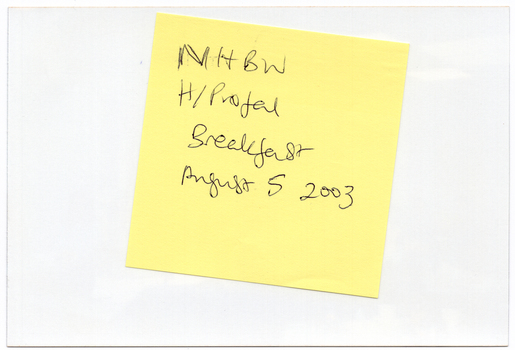 NHBW
H/Profal
Breakfast
August 5 2003